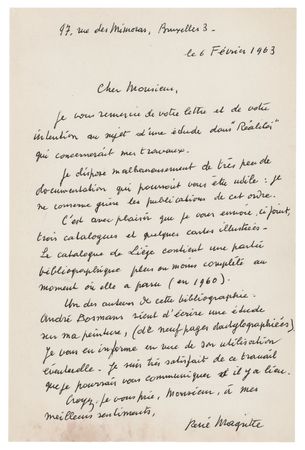 97, rue des Mimosas, Bruxelles 3.
le 6 Février 1963
Cher Monsieur,
Je vous remercie de votre lettre et de votre
intention au sujet d'une étude dans "Réalités"
qui concernerait mes travaux.
Je dispose malheureusement de très peu de
documentation qui pourrait vous être utile : je
ne conserve guère les publications de cet ordre.
C'est avec plaisir que je vous envoie, ci-joint,
trois catalogues et quelques cartes illustrées.
Le catalogue de Liège contient une partie
bibliographique plus ou moins complète au
moment où elle a paru (en 1960).
Un des auteurs de cette bibliographie.
André Bosmans vient d'écrire une étude
sur ma peinture, (de neuf pages dactylographiées).
Je vous en informe en vue de son utilisation
éventuelle. Je suis très satisfait de ce travail
que je pourrais vous communiquer s'il y a lieu.
Croyez, je vous prie, Monsieur, à mes
meilleurs sentiments,
René Magritte